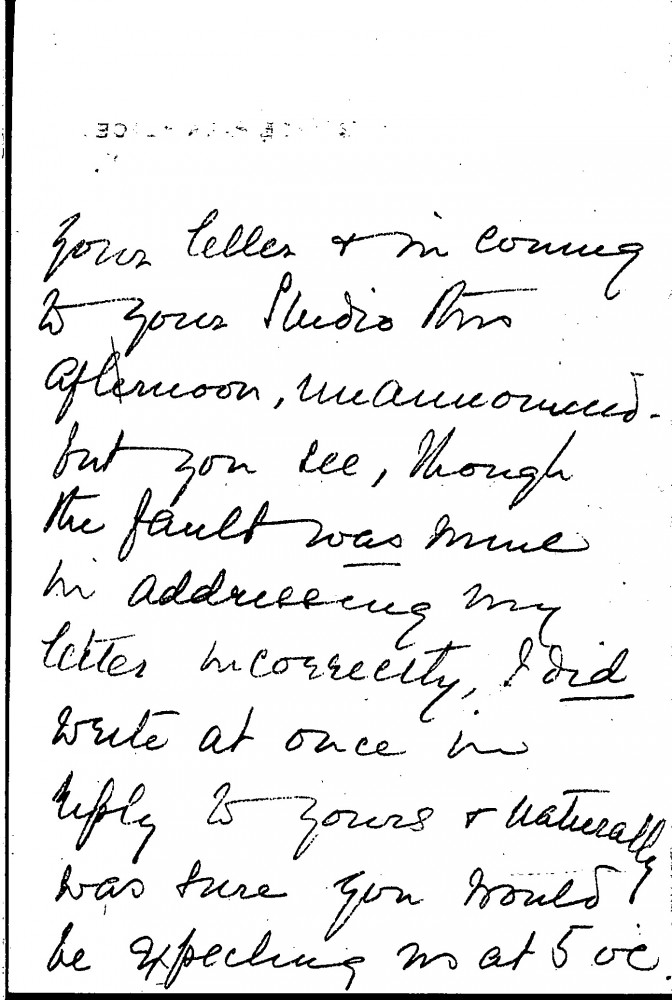 your letter & in coming
to your Studio this
afternoon, unannounced-
but you see, though
the fault was mine
in addressing my
letter incorrectly, I did
write at once in
reply to yours & naturally
was sure you would
be expecting us at 5 oc.